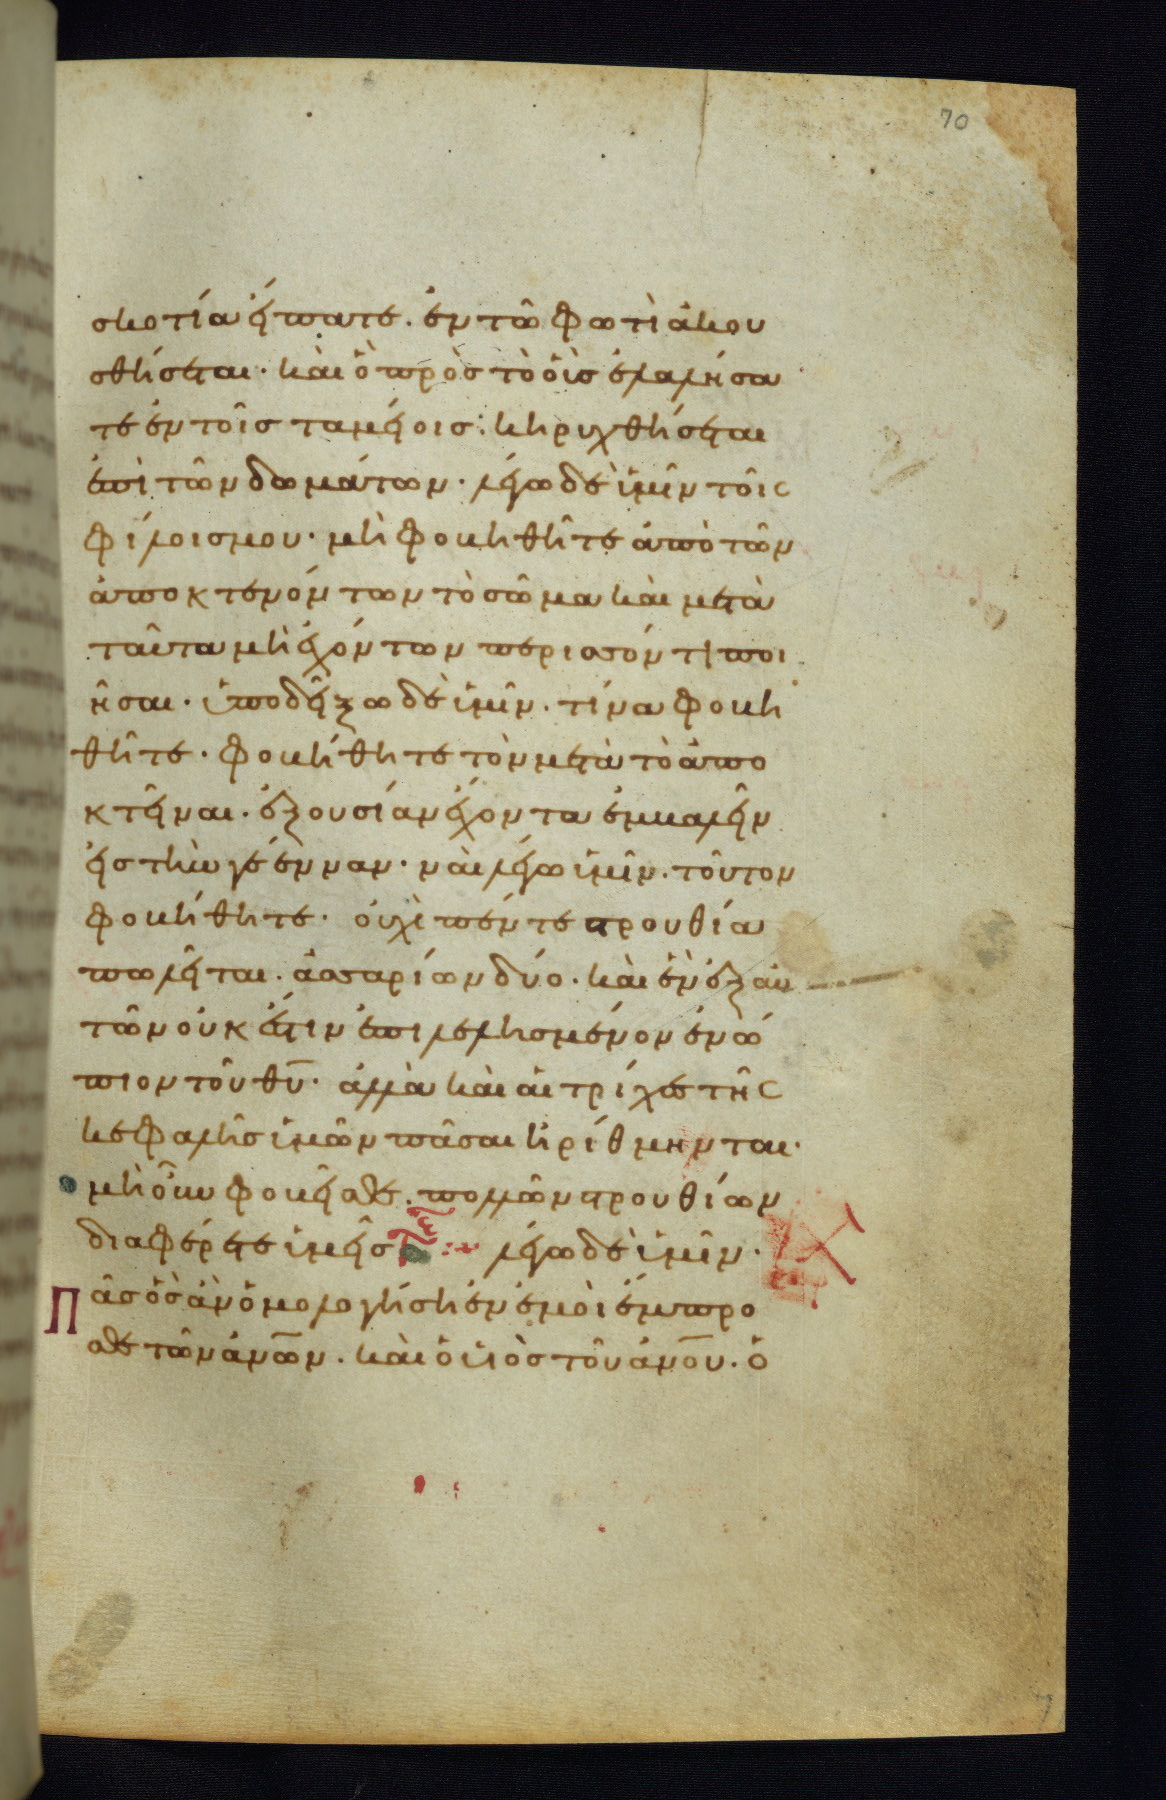 70
σκοτία εἴπατε. ἐν τῶ φωτὶ ἀκου
σθήσεται· καὶ ὃ πρὸς τὸ οὖς ἐλαλήσα
τε ἐν τοῖς ταμείοις· κηρυχθήσεται
ἐπὶ τῶν δωμάτων· λέγω δὲ ὑμῖν τοῖς
φίλοις μου· μὴ φοβηθῆτε ἀπὸ τῶν
ἀποκτενόντων τὸ σῶμα καὶ μετὰ
ταῦτα μὴ ἐχόντων περισσόν τι ποι
ῆσαι· ὑποδείξω δὲ ὑμῖν. τίνα φοβη
θῆτε· φοβήθητε τὸν μετὰ τὸ ἀπο
κτεῖναι. ἐξουσίαν ἔχοντα ἐμβαλεῖν
εἰς τὴν γέενναν· ναὶ λέγω ὑμῖν. τοῦτον
φοβήθητε· οὐχὶ πέντε στρουθία
πωλεῖται. ἀσσαρίων δύο. καὶ ἓν ἐξ αὐ
τῶν οὐκ ἔστιν ἐπιλελησμένον ἐνώ
πιον τοῦ θυ· ἀλλὰ καὶ αἱ τρίχες τῆς
κεφαλῆς ὑμῶν πᾶσαι ἠρίθμηνται·
μὴ οὖν φοβεῖσθε. πολλῶν στρουθίων
διαφέρετε ὑμεῖς λέγω δὲ ὑμῖν·
Πᾶς ὃς ἂν ὁμολογήσῃ ἐν ἐμοὶ ἔμπρο
σθε τῶν ἀνων. καὶ ὁ υἱὸς τοῦ ἀνου. ὁ